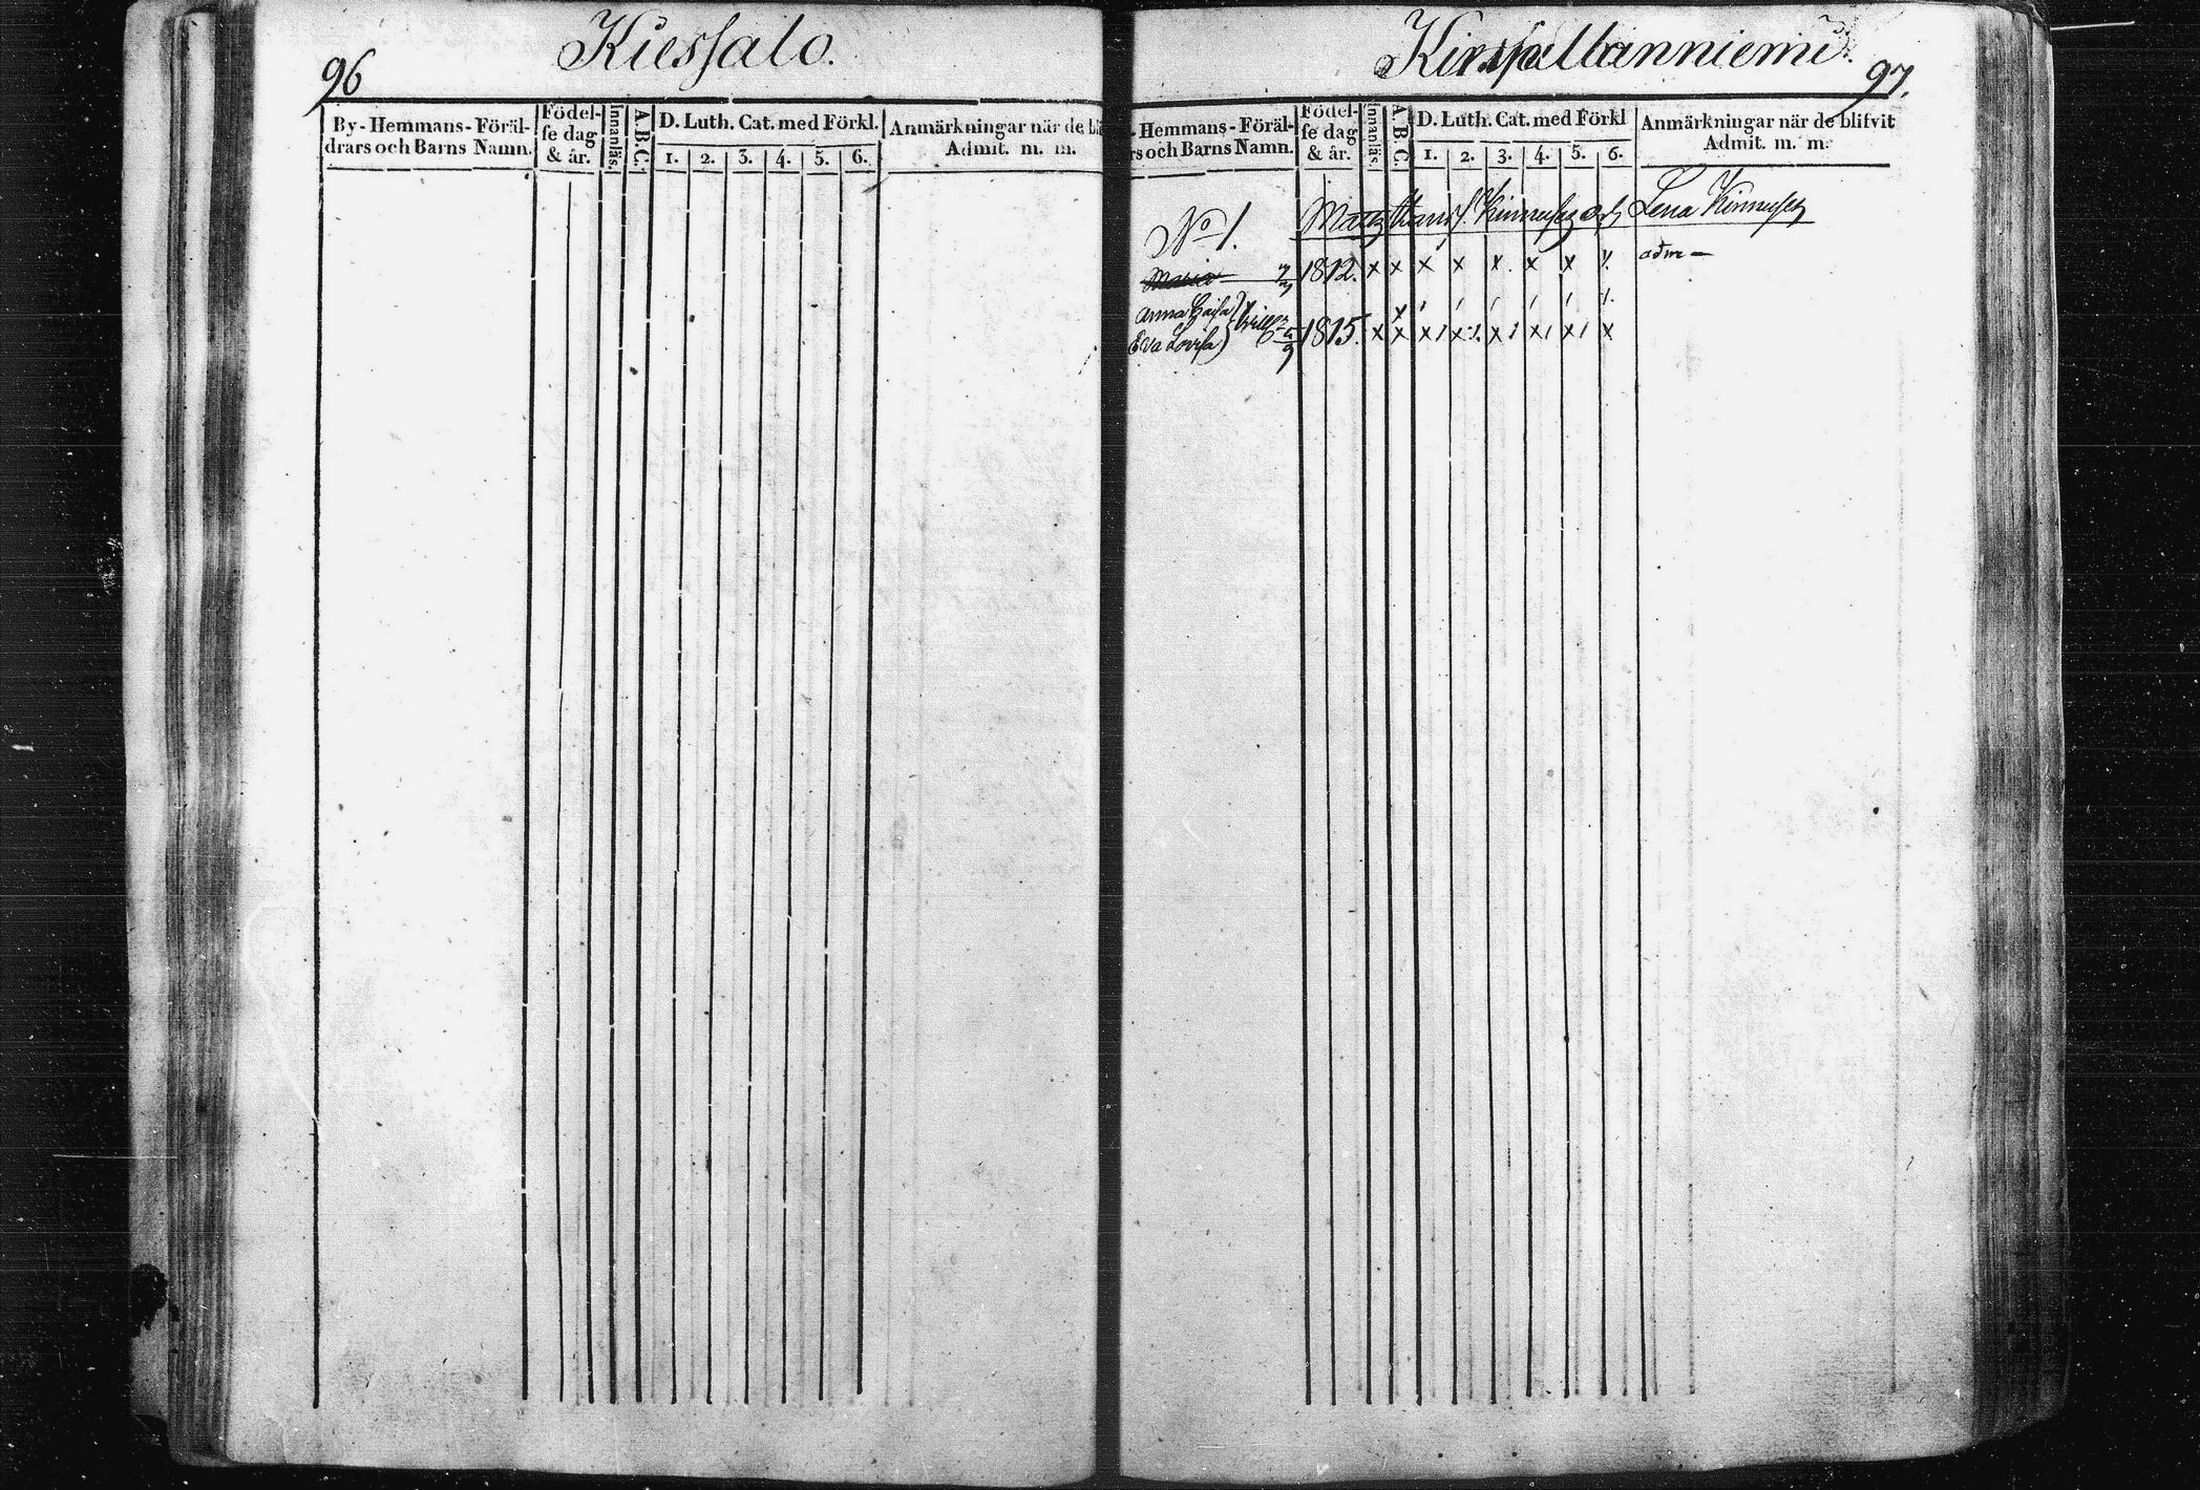 96
Kiessalo.
By- Hemmans- Föräl-
drars och Barns Namn.
Födel-
se dag
& år.
Innanläs.
A. B. C.
D. Luth. Cat. med Förkl.
1. 2. 3. 4. 5. 6.
Anmärkningar när de bli
Admit. m. m.
97.
- Hemmans- Föräl-
rs och Barns Namn.
Födel-
se dag
& år.
Innanläs.
A. B. C.
D. Luth. Cat. med Förkl
1. 2. 3. 4. 5. 6.
Anmärkningar när de blifvit
Admit. m. m.
No 1. Matts Kinnunen och Lena Kinnunen
Maria 1812. x x x x x x x x adm
Anna Caisa
Eva Lovisa 5/9 1815. x x x x x x x x